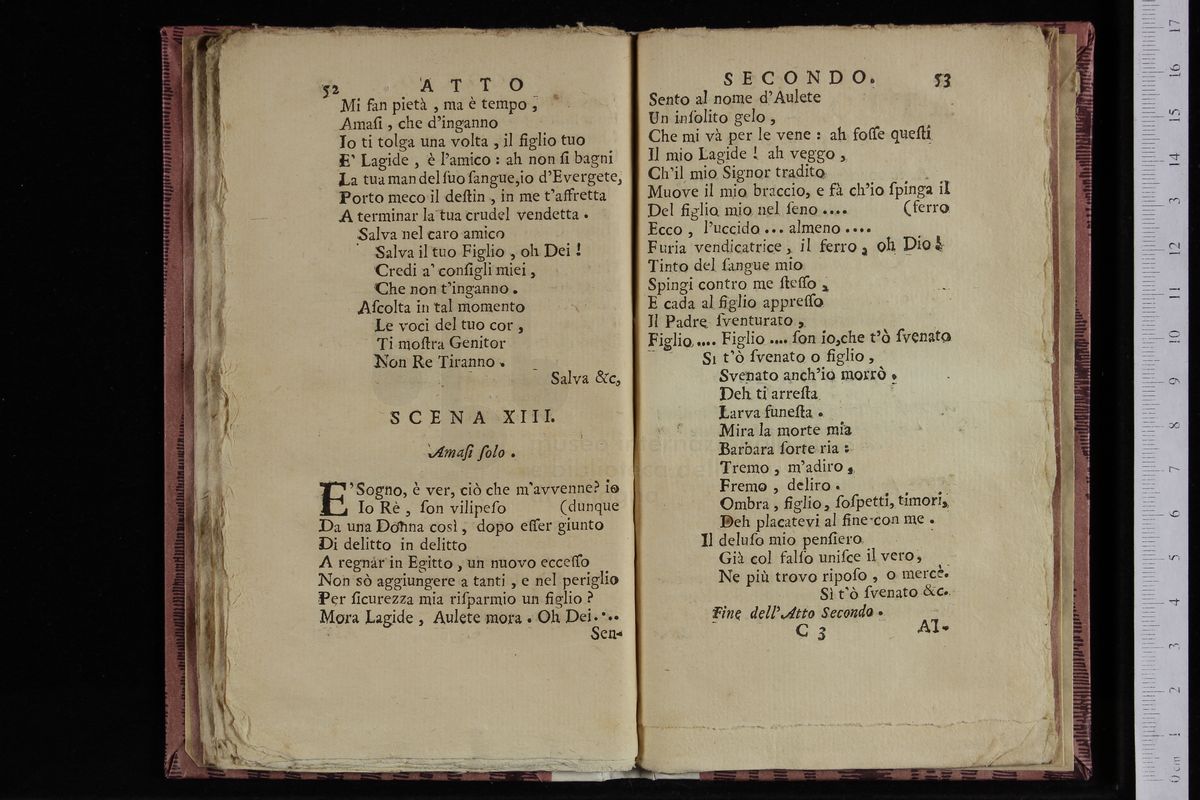 52 ATTO
Mi fan pietà , ma è tempo ,
Amaſi , che d'inganno
Io ti tolga una volta , il figlio tuo
E' Lagide , è l'amico : ah non ſi bagni
La tua man del ſuo ſangue,io d'Evergete,
Porto meco il deſtin , in me t'affretta
A terminar la tua crudel vendetta .
Salva nel caro amico
Salva il tuo Figlio , oh Dei !
Credi a' conſigli miei ,
Che non t'inganno .
Aſcolta in tal momento
Le voci del tuo cor ,
Ti moſtra Genitor
Non Re Tiranno .
Salva &c,
SCENA XIII.
Amaſi ſolo .
E'Sogno, è ver, ciò che m'avvenne? io
Io Rè , ſon vilipeſo (dunque
Da una Donna così , dopo eſſer giunto
Di delitto in delitto
A regnar in Egitto , un nuovo ecceſſo
Non sò aggiungere a tanti , e nel periglio
Per ſicurezza mia riſparmio un figlio ?
Mora Lagide , Aulete mora . Oh Dei....
Sen-
SECONDO. 53
Sento al nome d'Aulete
Un inſolito gelo ,
Che mi và per le vene : ah foſſe queſti
Il mio Lagide ! ah veggo ,
Ch'il mio Signor tradito
Muove il mio braccio, e fà ch'io ſpinga il
Del figlio mio nel ſeno .... (ferro
Ecco , l'uccido ... almeno ....
Furia vendicatrice , il ferro , oh Dio !
Tinto del ſangue mio
Spingi contro me ſteſſo ,
E cada al figlio appreſſo
Il Padre ſventurato ,
Figlio .... Figlio .... ſon io,che t'ò ſvenato
Si t'ò ſvenato o figlio ,
Svenato anch'io morrò .
Deh ti arreſta
Larva funeſta .
Mira la morte mia
Barbara ſorte ria :
Tremo , m'adiro ,
Fremo , deliro .
Ombra , figlio , ſoſpetti, timori,
Deh placatevi al fine con me .
Il deluſo mio penſiero
Già col falſo uniſce il vero ,
Ne più trovo ripoſo , o mercè.
Sì t'ò ſvenato &c.
Fine dell'Atto Secondo .
C 3 AT-